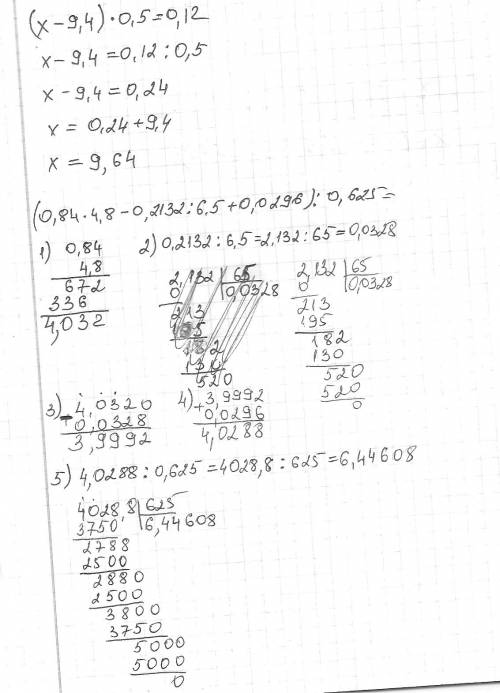 (x-9,4)·0,5=0,12
x-9,4=0,12:0,5
x-9,4=0,24
x=0,24+9,4
x=9,64
(0,84·4,8-0,2132:6,5+0,0296):0,625=
1) 0,84
4,8
672
336
4,032
2) 0,2132:6,5=2,132:65=0,0328
2,132 65
0 0,0328
213
195
182
130
520
520
0
3) 4,0320
0,0328
3,9992
4) 3,9992
+0,0296
4,0288
5) 4,0288:0,625=4028,8:625=6,44608
4028,8 625
3750 6,44608
2788
2500
2880
2500
3800
3750
5000
5000
0